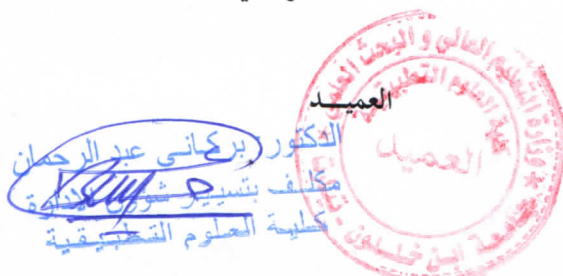 العميد
الدكتور: بركاني عبد الرحمان
مكلف بتسيير شؤون
كلية العلوم التطبيقية
وزارة التعليم العالي و البحث العلمي
كلية العلوم التطبيقية
العميد
جامعة ابن خلدون